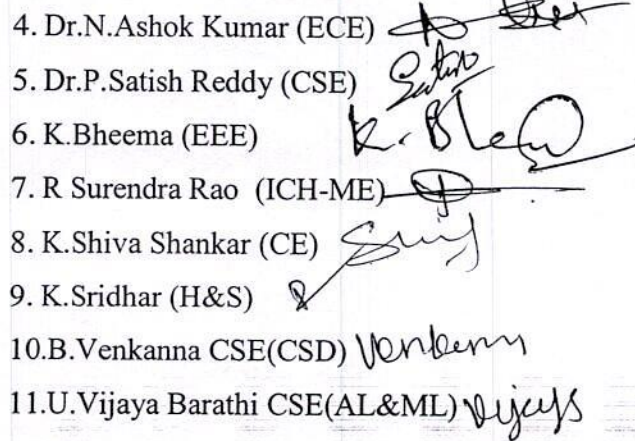 4. Dr.N.Ashok Kumar (ECE)
5. Dr.P.Satish Reddy (CSE) Satish
6. K.Bheema (EEE) K. Bheem
7. R Surendra Rao (ICH-ME)
8. K.Shiva Shankar (CE)
9. K.Sridhar (H&S)
10.B.Venkanna CSE(CSD)
11.U.Vijaya Barathi CSE(AL&ML)